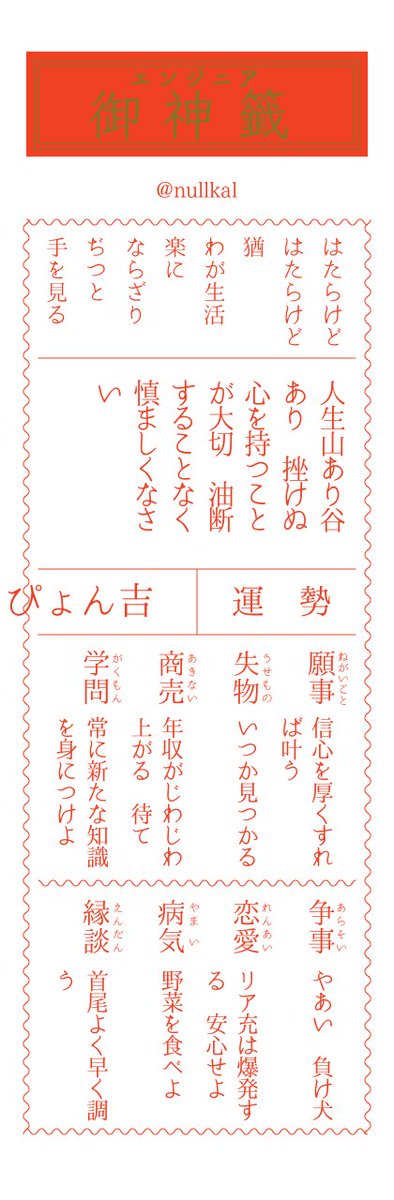 エンジニア
御神籤
@nullkal
はたらけど
はたらけど
猶
わが生活
楽に
ならざり
ぢつと
手を見る
人生山あり谷
あり 挫けぬ
心を持つこと
が大切 油断
することなく
慎ましくなさ
い
運 勢
ぴょん吉
ねがいごと
願事
信心を厚くすれ
ば叶う
うせもの
失物
いつか見つかる
あきない
商売
年収がじわじわ
上がる 待て
がくもん
学問
常に新たな知識
を身につけよ
あらそい
争事
やあい 負け犬
れんあい
恋愛
リア充は爆発す
る 安心せよ
やまい
病気
野菜を食べよ
えんだん
縁談
首尾よく早く調
う